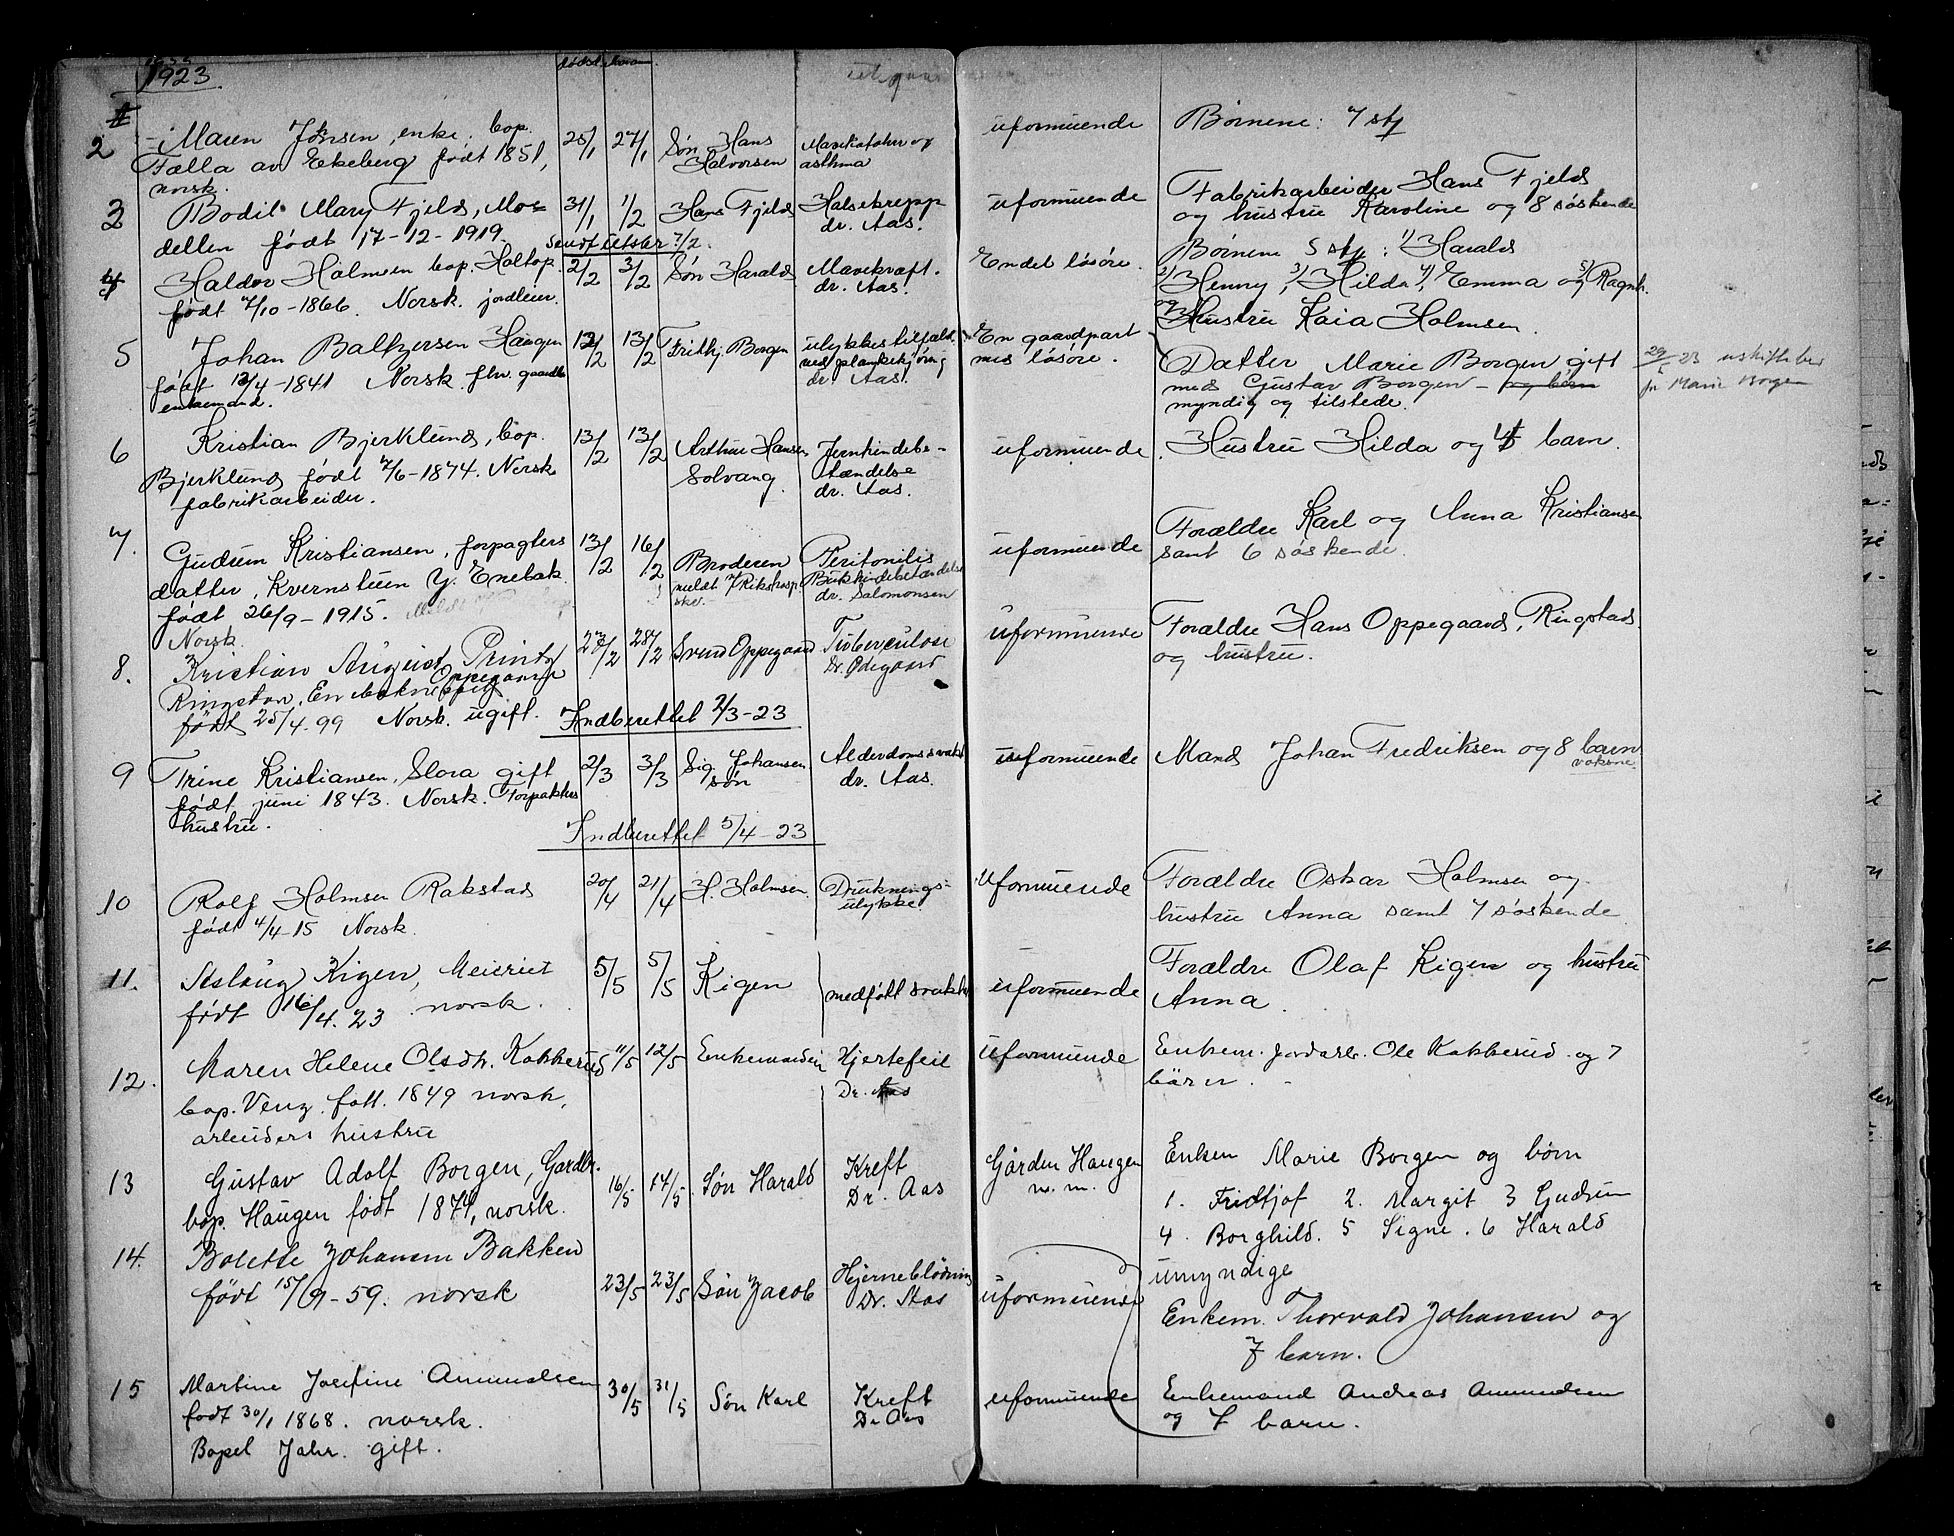 1923
2 Maren Jønsen, enke. bop. 25/1 27/1 Søn Hans uformuende Børnene: 7 stj
Fælla av Ekeberg født 1851, Halvorsen asthma
norsk.
3 Bodil Mary Fjeld, Moe- 31/1 1/2 Hans Fjeld Halsekrepp uformuende Fabrikarbeider Hans Fjeld
dellen født 17-12-1919. dr. Aas. og hustru Karoline og 8 søskende
Sendt 7/2.
4 Haldor Holmsen bop. Holtop. 2/2 3/2 Søn Harald Mavekræft. Endel løsøre. Børnene 5 stj: 1/ Harald
født 7/10-1866. Norsk. jordleier. dr. Aas. 2/ Henny, 3/ Hilda, 4/ Emma og 5/ Ragnh.
og Hustru Kaia Holmsen.
5 Johan Baltzersen Haugen 12/2 13/2 Frithj. Borgen ulykkestilfæld. En gaardpart Datter Marie Borgen gift 29/5 23 uskiftebev
født 12/4-1841 Norsk fhv. gaardb. ved plankekjøring med løsøre. med Gustav Borgen - og børn fr Marie Borgen
enkemand. dr Aas. myndig og tilstede.
6 Kristian Bjerklund, bop. 13/2 13/2 Arthur Hansen Jernhindebe- uformuende Hustru Hilda og 4 barn.
Bjerklund født 7/6-1874. Norsk Solvang. tændelse
fabrikarbeider. dr. Aas.
7. Gudrun Kristiansen, forpagters 13/2 16/2 Broderen Peritonitis uformuende Forældre Karl og Anna Kristiansen
datter, Kvernstuen Y. Enebak. meldt Rikshosp. Bukhindebetændelse samt 6 søskende.
født 26/9-1915. dr. Salomonsen
Norsk
8. Kristian August Printz 27/2 28/2 Svend Oppegaard Tuberculose uformuende Forældre Hans Oppegaard, Ringstad
Oppegaard Dr. Ødegaard og hustru.
Ringstad, Enebak
født 25/4.99 Norsk. ugift. Indberettet 2/3-23
9 Trine Kristiansen, Slora gift 2/3 3/3 Sig. Johansen Alderdomssvakh. uformuende Mand Johan Fredriksen og 8 barn
født juni 1843. Norsk. Forpakters søn dr. Aas. voksne.
hustru.
Indberettet 5/4-23
10 Rolf Holmsen Rakstad 20/4 21/4 H. Holmsen. Druknings- uformuende Forældre Oskar Holmsen og
født 4/4-15 Norsk. ulykke. hustru Anna samt 7 søskende
11. Aslaug Kigen, Meieriet 5/5 5/5 Kigen medfött svakhet uformuende Forældre Olaf Kigen og hustru
født 16/4.23 norsk. Anna.
12. Maren Helene Olsdtr. Kakkerud 11/5 12/5 Enkemanden Hjertefeil uformuende Enkem. jordarb. Ole Kakkerud og 7
bop. Veng. født. 1849 norsk, Dr. Aas börn.
arbeiders hustru
13 Gustav Adolf Borgen, Gardbr. 16/5 17/5 Søn Harald Kreft Gården Haugen Enken Marie Borgen og børn
bop. Haugen født 1871, norsk. Dr. Aas m. m. 1. Fridtjof 2. Margit 3 Gudrun
4. Borghild. 5 Signe. 6 Harald
umyndige
14. Bolette Johansen Bakken 23/5 23/5 Søn Jacob Hjerneblödning uformuende Enkem. Thorvald Johansen og
født 15/9-59. norsk Dr. Aas 7 barn.
15 Martine Josefine Amundsen 30/5 31/5 Søn Karl Kreft uformuende Enkemand Andreas Amundsen
født 30/1 1868. norsk. Dr Aas og 7 barn.
Bopel Jahr. gift.